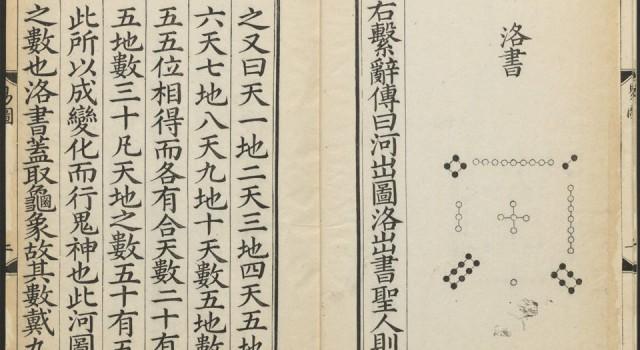 洛書
右繫辭傳曰河出圖洛出書聖人則
之又曰天一地二天三地四天五地
六天七地八天九地十天數五地數
五五位相得而各有合天數二十有
五地數三十凡天地之數五十有五
此所以成變化而行鬼神也此河圖
之數也洛書蓋取龜象故其數戴九
圖